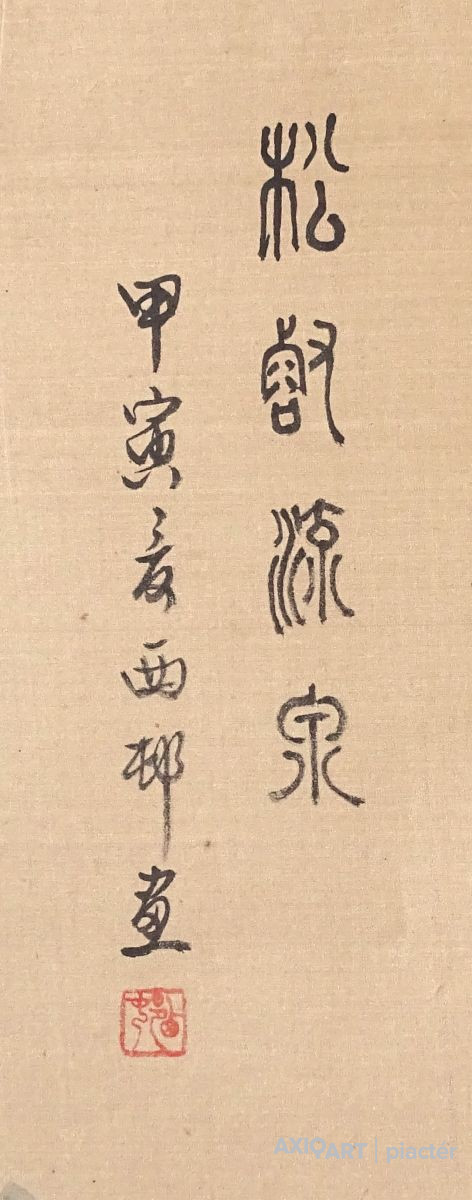 松壑流泉
甲寅夏西邨画
AXIOART | piactér